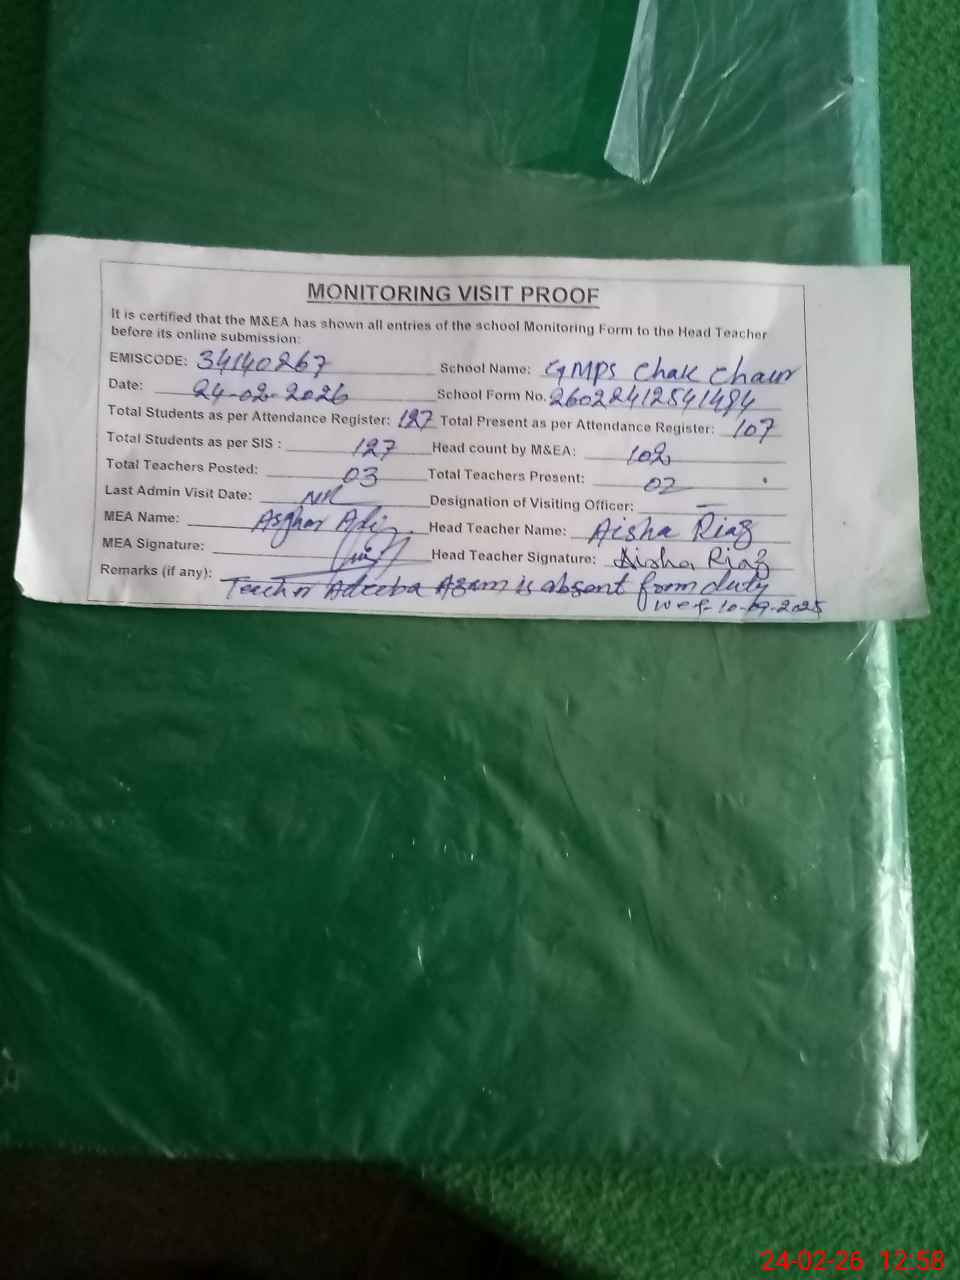 MONITORING VISIT PROOF
It is certified that the M&EA has shown all entries of the school Monitoring Form to the Head Teacher
before its online submission:
EMISCODE: 34140267 School Name: GMPS Chak Chaur
Date: 24-02-2026 School Form No. 26022412541494
Total Students as per Attendance Register: 127 Total Present as per Attendance Register: 107
Total Students as per SIS : 127 Head count by M&EA: 102
Total Teachers Posted: 03 Total Teachers Present: 02
Last Admin Visit Date: Designation of Visiting Officer: —
MEA Name: Asghar Head Teacher Name: Aisha Riaz
MEA Signature: Head Teacher Signature: Aisha Riaz
Remarks (if any): Teacher Adeeba Azam is absent form duty
w.e.f- 10-09-2025
24-02-26 12:58